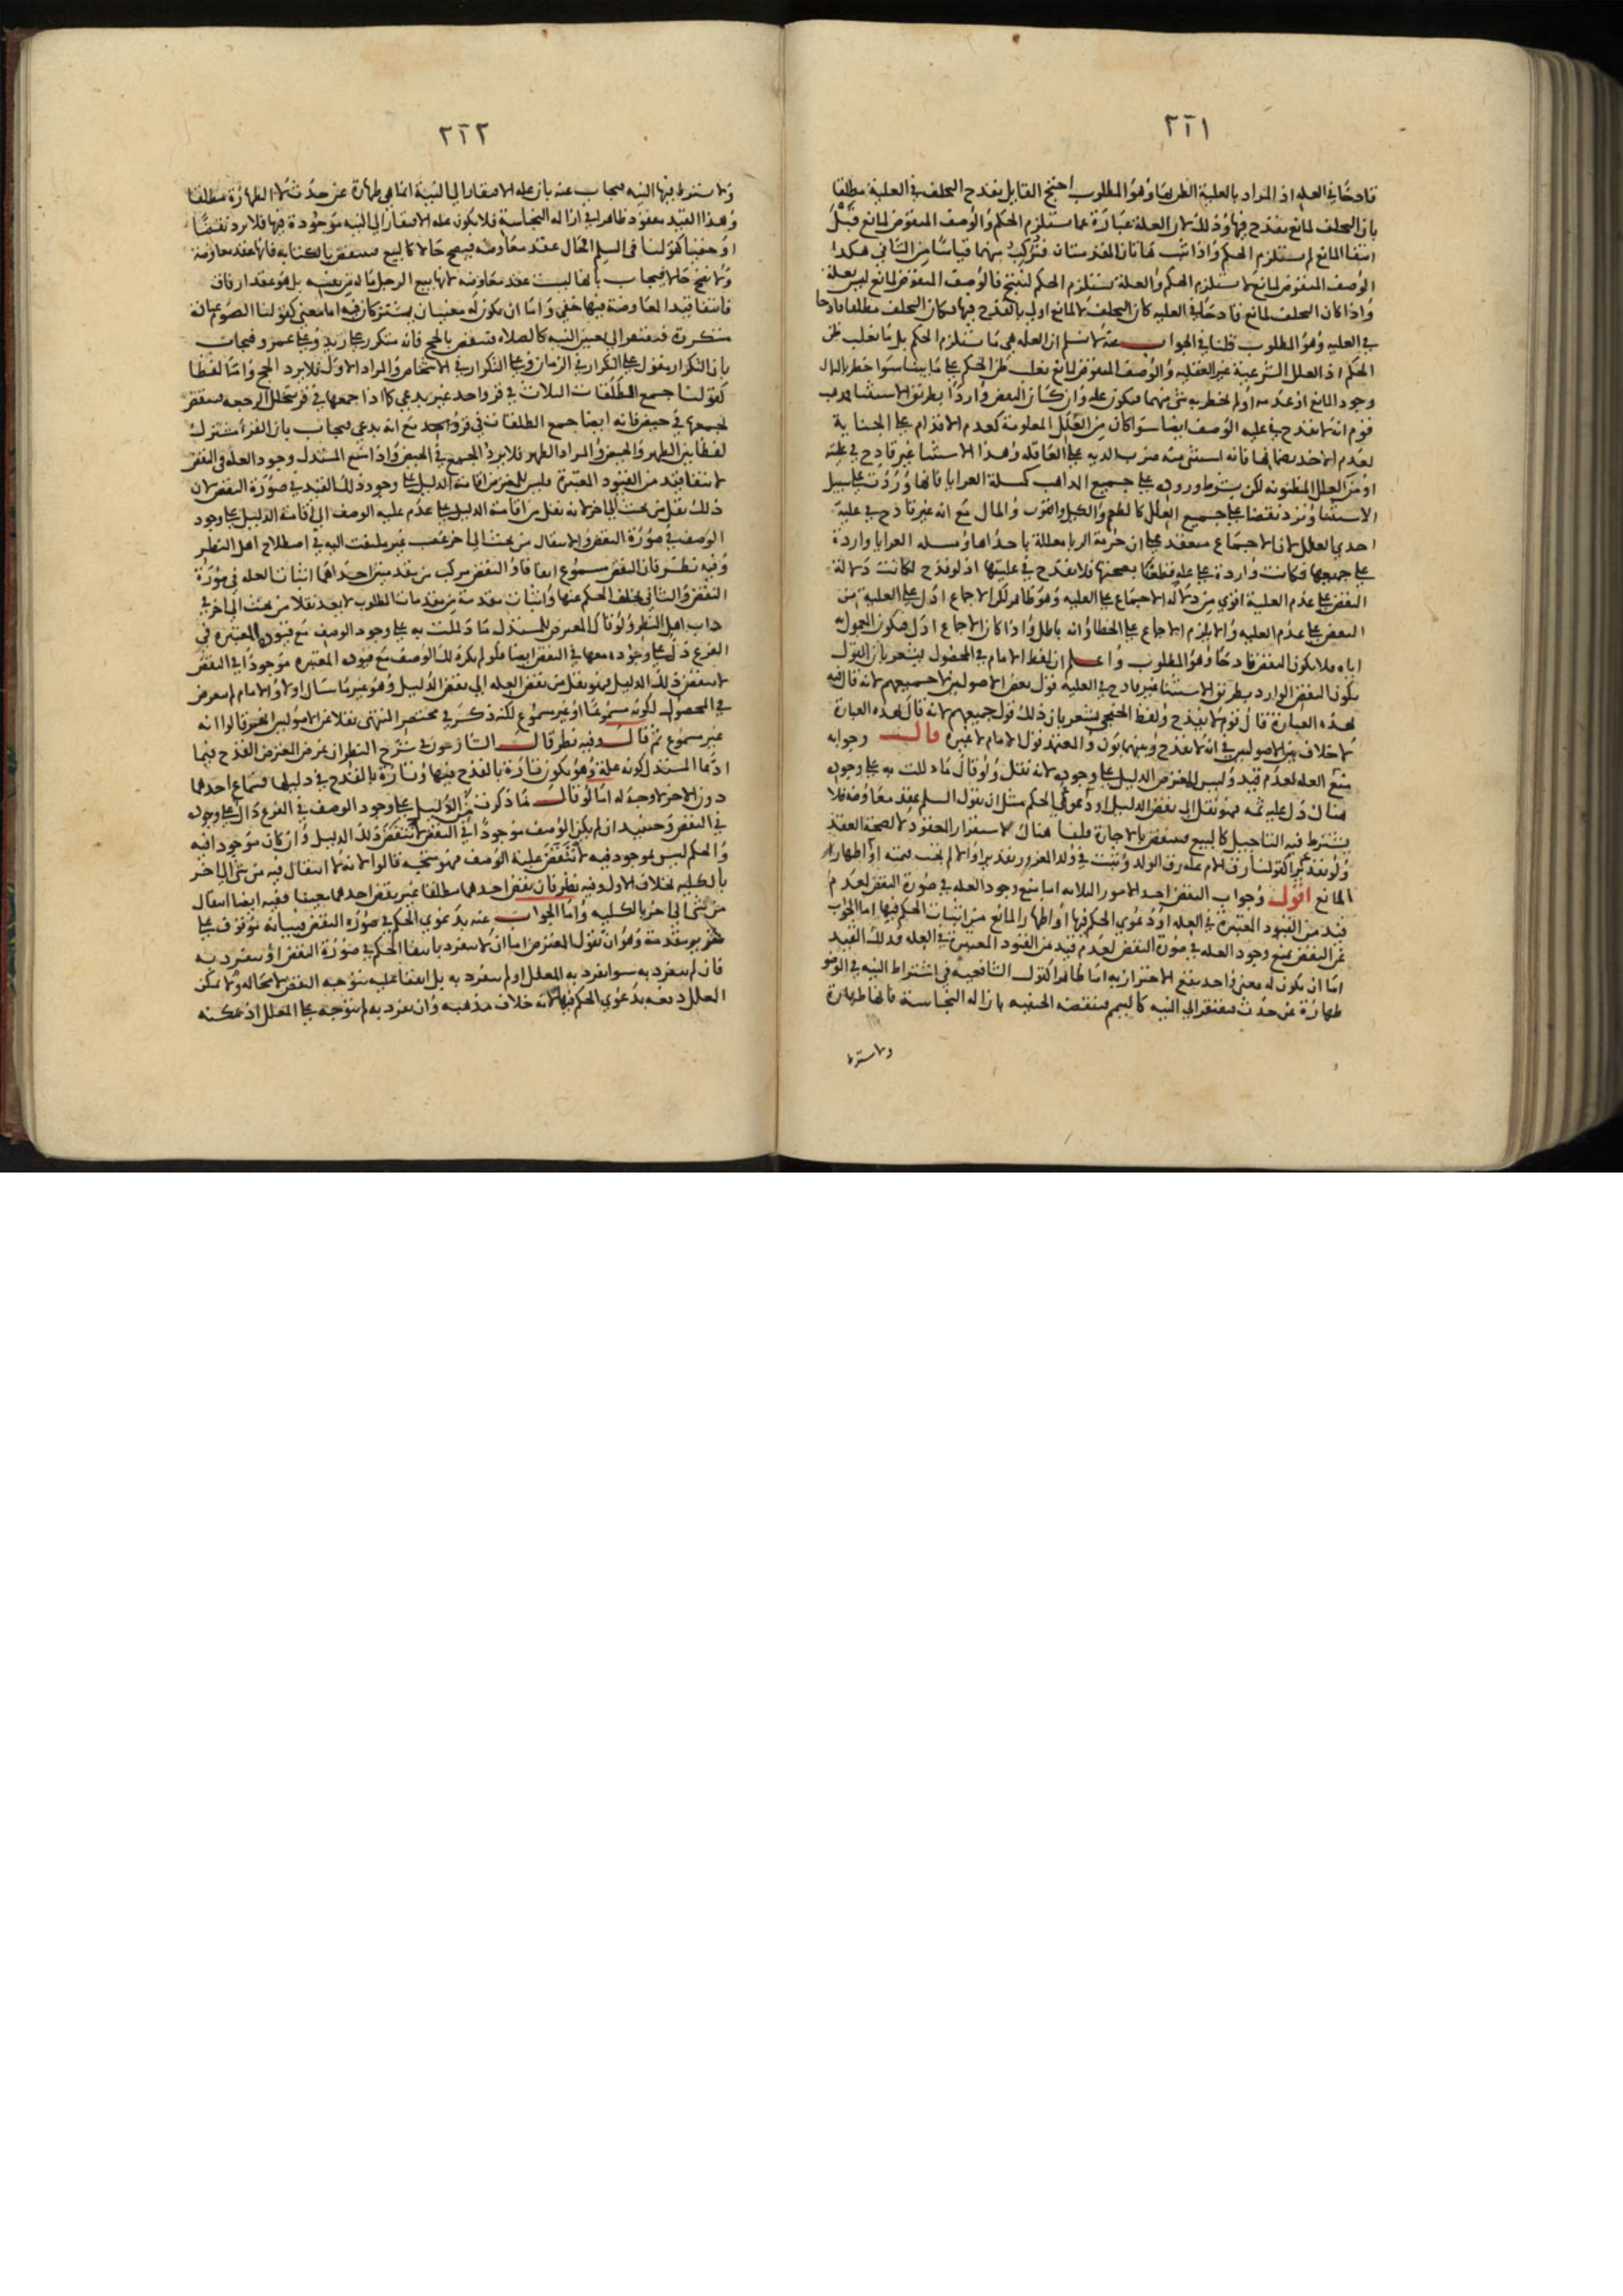 ٢٦١
قادحا في العلية اذ المراد بالعلية الظن بها وهو المطلوب احتج القايل بقدح التخلف في العلية مطلقا
بان التخلف لمانع يقدح فيها وذلك لان العلة عبارة عما يستلزم الحكم والوصف المنقوض لمانع قبل
انتفا المانع لم يستلزم الحكم واذا ثبت هاتان المقدمتان فنركب منهما قياسا من الثاني هكذا
الوصف المنقوض لمانع لا يستلزم الحكم والعلة تستلزم الحكم لينتج فالوصف المنقوض لمانع ليس بعلة
واذا كان التخلف لمانع قادحا في العلية كان التخلف لا لمانع اولى بالقدح فيها فكان التخلف مطلقا قادحا
في العلية وهو المطلوب قلنا في الجواب عنه لا نسلم ان العلة هي ما تستلزم الحكم بل ما يغلب ظن
الحكم اذ العلل الشرعية غير العقلية والوصف المنقوض لمانع يغلب ظن الحكم على ما بينا سوا خطر بالبال
وجود المانع او عدمه او لم يخطر به شي منهما فيكون علة وان كان النقض واردا بطريق الاستثنا فذهب
قوم انه لا يقدح في علية الوصف ايضا سوا كان من العلل المعلومة كعدم الاقدام على الجناية
لعدم الاخذ بضمانها فانه استثنى منه ضرب الدية على العاقلة وهذا الاستثنا غير قادح في علية
او من العلل المظنونة لكن بشرط وروده على جميع المذاهب كمسلة العرايا فانها وردت على سبيل
الاستثنا وترد نقضا على جميع العلل كالطعم والكيل والقوت والمال مع انه غير قادح في علية
احدى العلل لان الاجماع منعقد على ان حرمة الربا معللة باحداها ومسلة العرايا واردة
على جميعها فكانت واردة على علة قطعنا بصحتها فلا يقدح في عليتها اذ لو قدح لكانت دلالة
النقض على عدم العلية اقوى من دلالة الاجماع على العلية وهو ظاهر لكن الاجماع ادل على العلية من
النقض على عدم العلية والا يلزم الاجماع على الخطا وانه باطل واذا كان الاجماع ادل فيكون المعول به
اياه فلا يكون النقض قادحا وهو المطلوب واعلم ان لفظ الامام في المحصول يشعر بان القول
بكون النقض الوارد بطريق الاستثنا غير قادح في العلية قول بعض الاصوليين لا جميعهم لانه قال فيه
بهذه العبارة قال قوم لا يقدح ولفظ الخنجي يشعر بان ذلك قول جميعهم لانه قال بهذه العبارة
لا خلاف بين الاصوليين في انه لا يقدح وبينهما بون والمعتمد قول الامام لا غيره قال وجوابه
منع العلة لعدم قيد وليس للمعترض الدليل على وجوده لانه نقل ولو قال ما دللت به على وجوده
هنا دل عليه ثمه فهو نقل الى نقض الدليل او دعوى الحكم مثل ان نقول السلم عقد معاوضة فلا
يشترط فيه التاجيل كالبيع فينتقض بالاجارة قلنا هناك لاستقرار المعقود لا لصحة العقد
ولو تقديرا كقولنا رق الام علة رق الولد وثبت في ولد المغرور تقديرا والا لم تجب قيمته او اظهار
المانع اقول وجواب النقض احد الامور الثلاثة اما بمنع وجود العلة في صورة النقض لعدم
قيد من القيود المعتبرة في العلة او دعوى الحكم فيها او اظهار المانع من اثبات الحكم فيها اما الجواب
عن النقض بمنع وجود العلة في صورة النقض لعدم قيد من القيود المعتبرة في العلة فذلك القيد
اما ان يكون له معنى واحد يقع الاحتراز به اما ظاهرا كقول الشافعية في اشتراط النية في الوضو
طهارة عن حدث فيفتقر الى النية كالتيمم فينقضه الحنفية بازالة النجاسة فانها طهارة
ولا يشترط
٢٦٢
ولا يشترط فيها النية فيجاب عنه بان علة الافتقار الى النية انما هي طهارة عن حدث لا الطهارة مطلقا
وهذا القيد مفقود ظاهرا في ازالة النجاسة فلا يكون علة الافتقار الى النية موجودة فيها فلا يرد نقضا
او خفيا كقولنا في السلم الحال عقد معاوضة فيصح حالا كالبيع فينتقض بالكتابة فانها عقد معاوضة
ولا تصح حالا فيجاب بانها ليست عقد معاوضة لانها بيع الرجل ماله من نفسه بل هو عقد ارفاق
فانتفا قيد المعاوضة فيها خفي واما ان يكون له معنيان يشتركان فيه اما معنى كقولنا الصوم عبادة
متكررة فتفتقر الى تعيين النية كالصلاة فتنتقض بالحج فانه متكرر على زيد وعلى عمرو فيجاب
بان التكرار يقول على التكرار في الزمان وعلى التكرار في الاشخاص والمراد الاول فلا يرد الحج واما لفظا
كقولنا جمع الطلقات الثلاث في قرؤ واحد غير بدعي كما اذا جمعها في قرؤ تخلل الرجعة فينتقض
بجمعها في حيض فانه ايضا جمع الطلقات في قرؤ واحد مع انه بدعي فيجاب بان القرؤ مشترك
لفظا بين الطهر والحيض والمراد الطهر فلا يرد الجمع في الحيض واذا منع المستدل وجود العلة في النقض
لانتفا قيد من القيود المعتبرة فليس للمعترض اقامة الدليل على وجود ذلك القيد في صورة النقض لان
ذلك نقل من بحث الى اخر لانه نقل من اقامة الدليل على عدم علية الوصف الى اقامة الدليل على وجود
الوصف في صورة النقض والانتقال من بحث الى اخر غصب غير ملتفت اليه في اصطلاح اهل النظر
وفيه نظر فان النقض مسموع اتفاقا والنقض مركب من مقدمتين احداهما اثبات العلة في صورة
النقض والثاني تخلف الحكم عنها واثبات مقدمة من مقدمات المطلوب لا يعد نقلا من بحث الى اخر في
داب اهل النظر ولو قال المعترض للمستدل ما دللت به على وجود الوصف مع قيوده المعتبرة في
الفرع دل على وجوده معها في النقض ايضا فلو لم يكن ذلك الوصف مع قيوده المعتبرة موجودا في النقض
لانتقض ذلك الدليل فهو نقل من نقض العلة الى نقض الدليل وهو غير ما سال اولا والامام لم يتعرض
في المحصول لكونه مسموعا او غير مسموع لكنه ذكر في مختصر المنتهى نقلا عن الاصوليين انهم قالوا انه
غير مسموع ثم قال وفيه نظر قال الشارحون في شرح النظر ان غرض المعترض القدح فيما
ادعاه المستدل كونه علة وهو يكون تارة بالقدح فيها وتارة بالقدح في دليلها فسماع احدهما
دون الاخر لا وجه له اما لو قال ما ذكرت من الدليل على وجود الوصف في الفرع دال على وجوده
في النقض وحينئذ ان لم يكن الوصف موجودا في النقض لانتقض ذلك الدليل وان كان موجودا فيه
والحكم ليس بموجود فيه لانتقض علية الوصف فهو متجه قالوا لانه لا انتقال فيه من شي الى اخر
بالكلية بخلاف الاول وفيه نظر فان نقض احدهما مطلقا غير نقض احدهما معينا ففيه ايضا انتقال
من شي الى اخر بالكلية واما الجواب عنه بدعوى الحكم في صورة النقض فبيانه يتوقف على
تقرير مقدمة وهو ان نقول المعترض اما ان لا ينفرد بانتفا الحكم في صورة النقض او ينفرد به
فان لم ينفرد به سوا انفرد به المعلل او لم ينفرد به بل اتفقا عليه يتوجه النقض لا محالة ولا يمكن
المعلل دفعه بدعوى الحكم فيها لانه خلاف مذهبه وان انفرد به لم يتوجه على المعلل اذ يمكنه